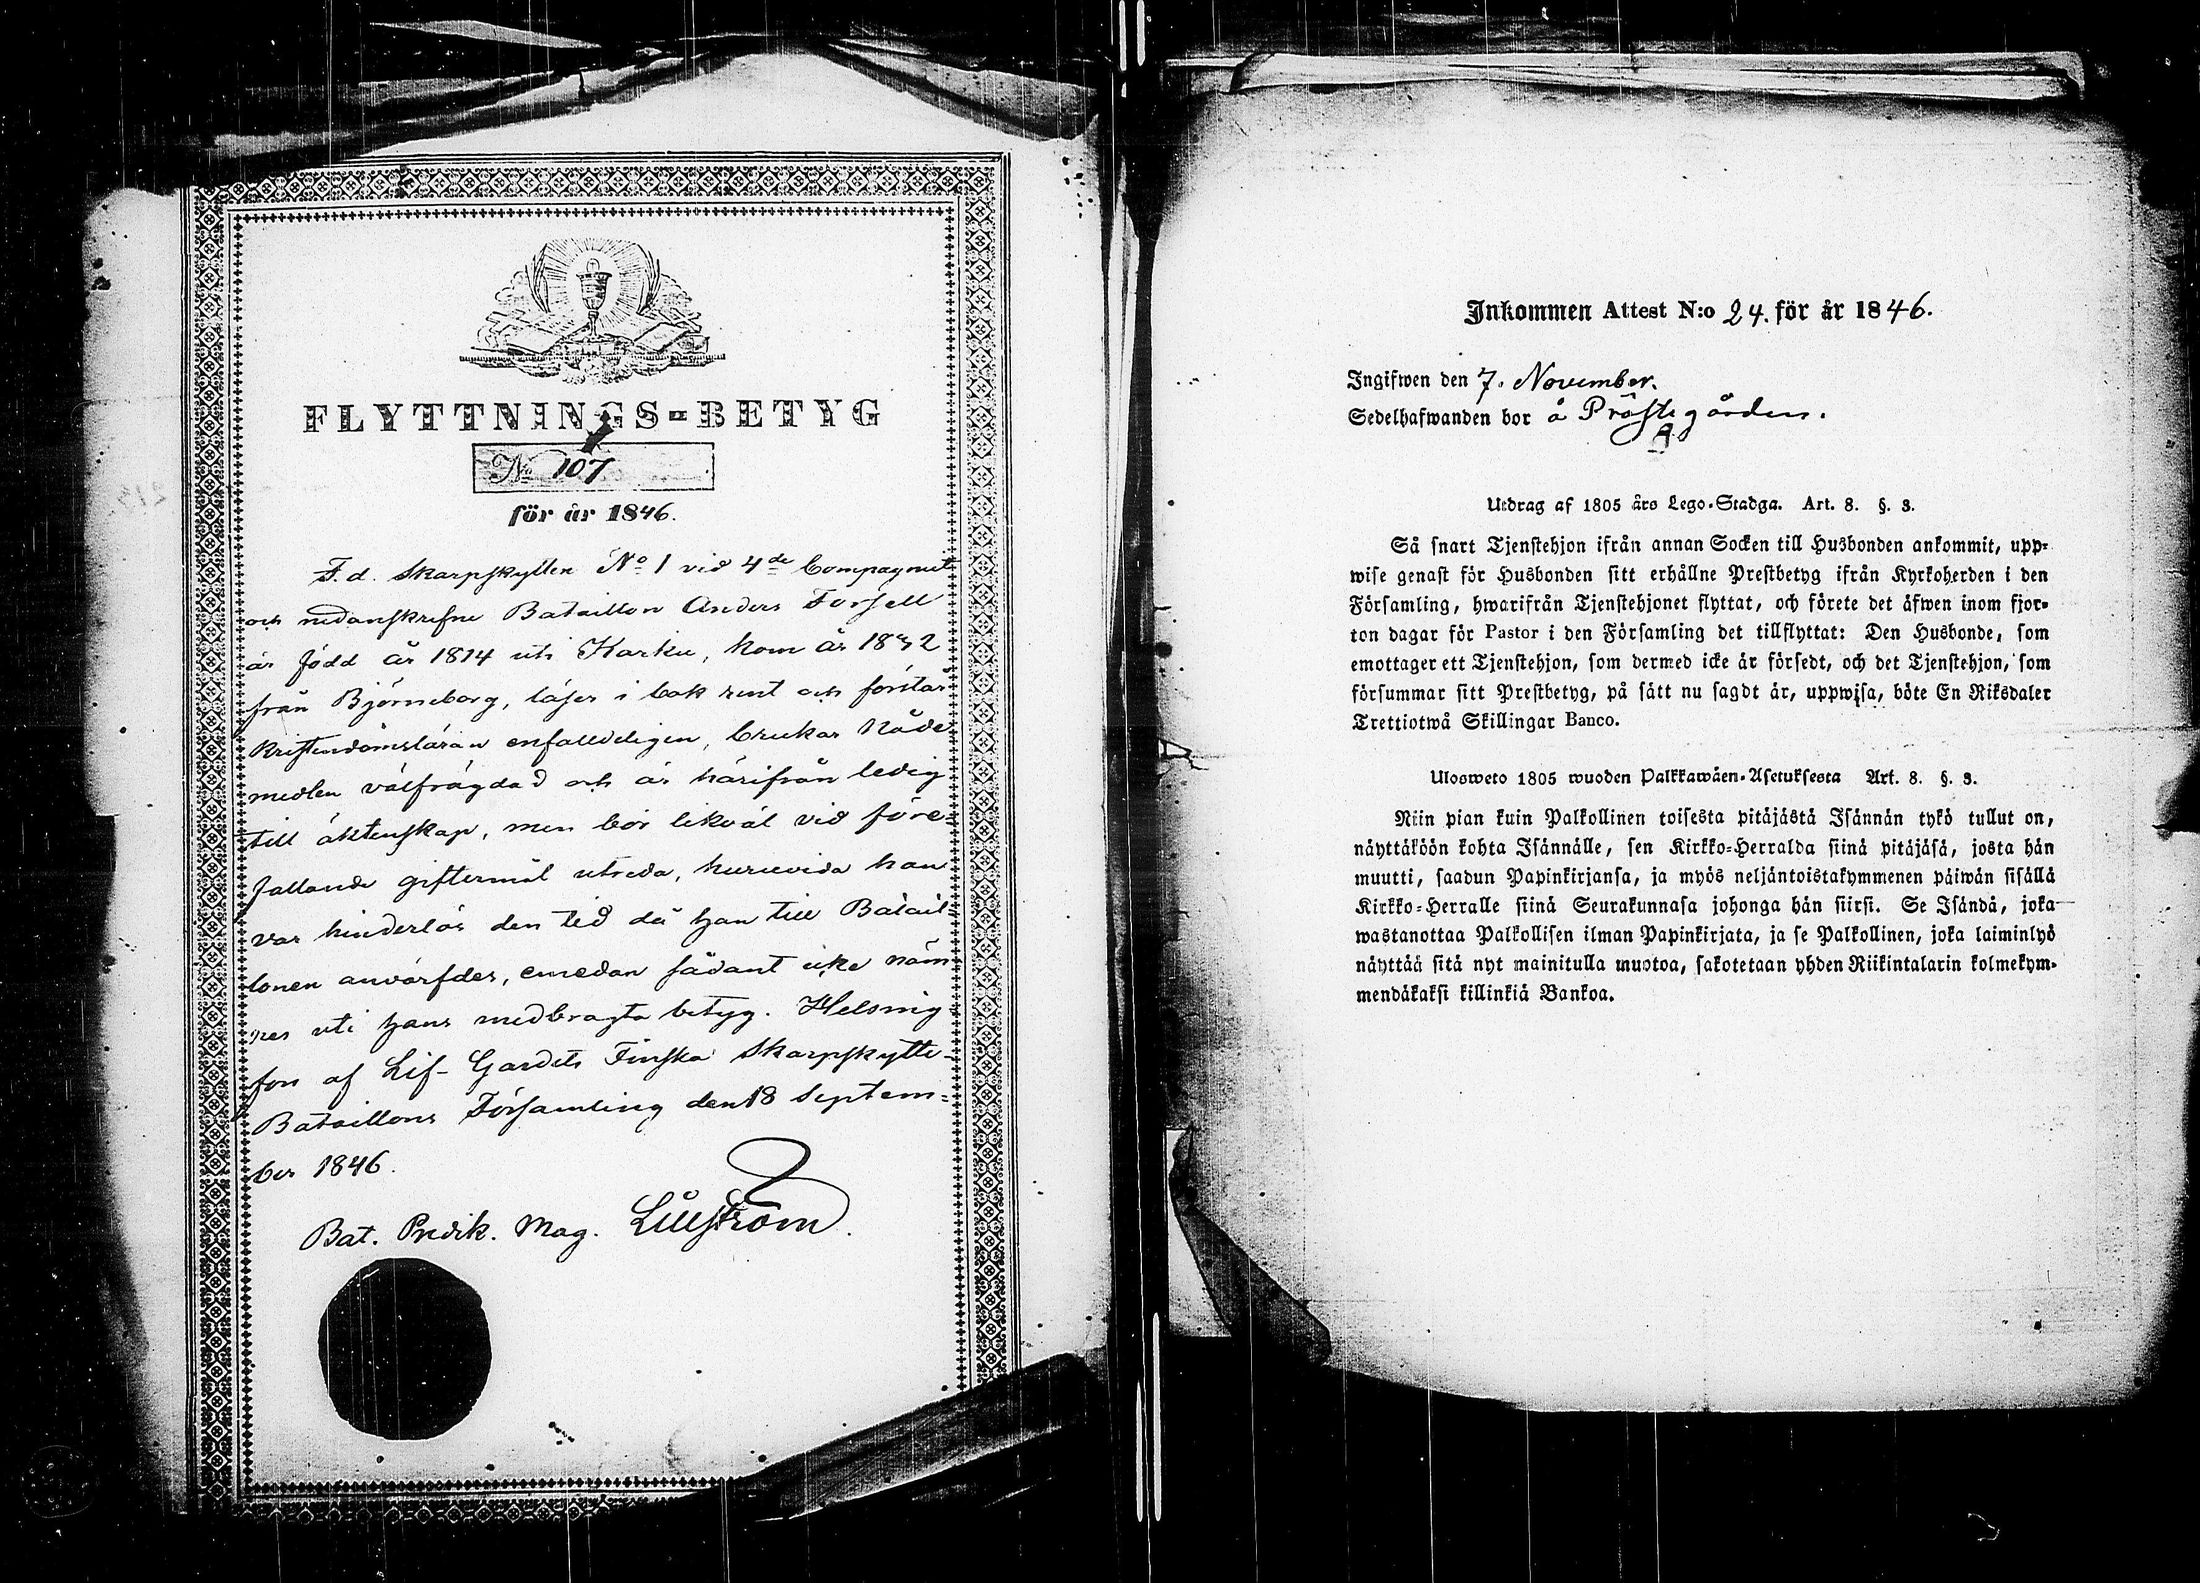 FLYTTNINGS-BETYG
No 107
för år 1846.
F. d. Skarpskytten No 1 vid 4de Compagniet
och nedanskrefne Bataillon Anders Forsell
är född år 1814 uti Karku, kom år 1832
från Björneborg, läser i bok rent och förstår
Kristendomsläran enfalldeligen, brukar Nåde
medlen välfrägdad och är härifrån ledig
till äktenskap, men bör likväl vid före-
fallande giftermål utreda, huruvida han
var hinderlös den tid då han till Batail-
lonen anvärfdes, emedan sådant icke näm
nes uti hans medbragta betyg. Helsing-
fors af Lif-Gardets Finska Skarpskytte-
Bataillons Församling den 18 Septem-
ber 1846.
Bat. Predik. Mag. Lillström.
Inkommen Attest N:o 24. för år 1846.
Ingifwen den 7. November.
Sedelhafwanden bor å Prästegården.
Utdrag af 1805 års Lego-Stadga. Art. 8. §. 3.
Så snart Tjenstehjon ifrån annan Socken till Husbonden ankommit, upp-
wise genast för Husbonden sitt erhållne Prestbetyg ifrån Kyrkoherden i den
Församling, hwarifrån Tjenstehjonet flyttat, och förete det äfwen inom fjor-
ton dagar för Pastor i den Församling det tillflyttat: Den Husbonde, som
emottager ett Tjenstehjon, som dermed icke är försedt, och det Tjenstehjon, som
försummar sitt Prestbetyg, på sätt nu sagdt är, uppwisa, böte En Riksdaler
Trettiotwå Skillingar Banco.
Ulosweto 1805 wuoden Palkkawäen-Asetuksesta Art. 8. §. 3.
Niin pian kuin Palkollinen toisesta pitäjästä Isännän tykö tullut on,
näyttäköön kohta Isännälle, sen Kirkko-Herralda siinä pitäjäsä, josta hän
muutti, saadun Papinkirjansa, ja myös neljäntoistakymmenen päiwän sisällä
Kirkko-Herralle siinä Seurakunnasa johonga hän siirsi. Se Isändä, joka
wastanottaa Palkollisen ilman Papinkirjata, ja se Palkollinen, joka laiminlyö
näyttää sitä nyt mainitulla muotoa, sakotetaan yhden Riikintalarin kolmekym-
mendäkaksi killinkiä Bankoa.